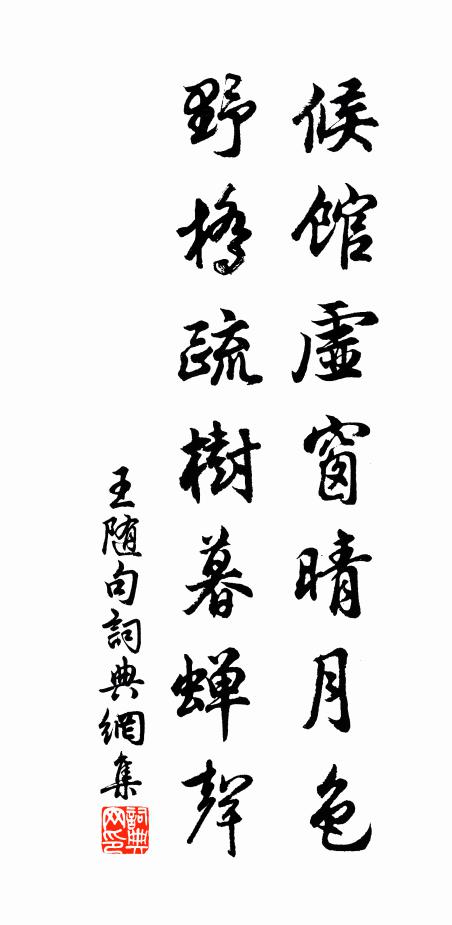 候馆虛窗晴月色
野橋疏樹暮蝉聲
王随句詞典網集
詞典网印